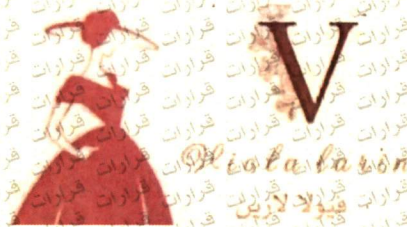 V
Viola larin
فيولا لارين
قرارات